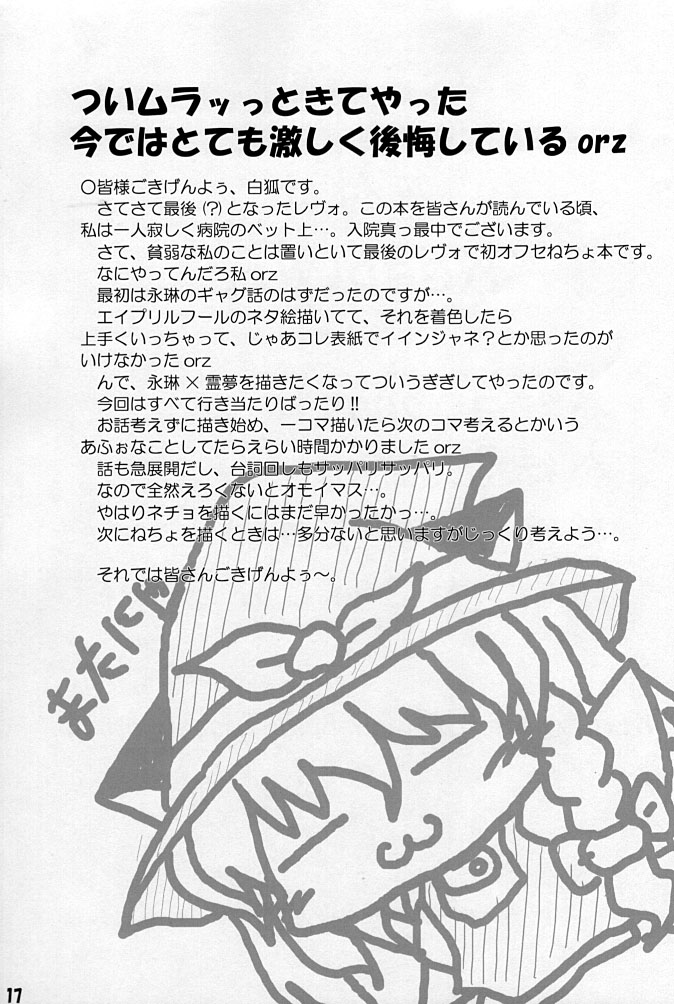 ついムラッっときてやった
今ではとても激しく後悔しているorz
〇皆様ごきげんよぅ、白狐です。
さてさて最後(?)となったレヴォ。この本を皆さんが読んでいる頃、
私は一人寂しく病院のベット上…。入院真っ最中でございます。
さて、貧弱な私のことは置いといて最後のレヴォで初オフセねちょ本です。
なにやってんだろ私orz
最初は永琳のギャグ話のはずだったのですが…。
エイプリルフールのネタ絵描いてて、それを着色したら
上手くいっちゃって、じゃあコレ表紙でイインジャネ？とか思ったのが
いけなかったorz
んで、永琳×霊夢を描きたくなってついうぎぎしてやったのです。
今回はすべて行き当たりばったり!!
お話考えずに描き始め、一コマ描いたら次のコマ考えるとかいう
あふぉなことしてたらえらい時間かかりましたorz
話も急展開だし、台詞回しもサッパリサッパリ。
なので全然えろくないとオモイマス…。
やはりネチョを描くにはまだ早かったかっ…。
次にねちょを描くときは…多分ないと思いますがじっくり考えよう…。
それでは皆さんごきげんよぅ～。
またにゃ
17